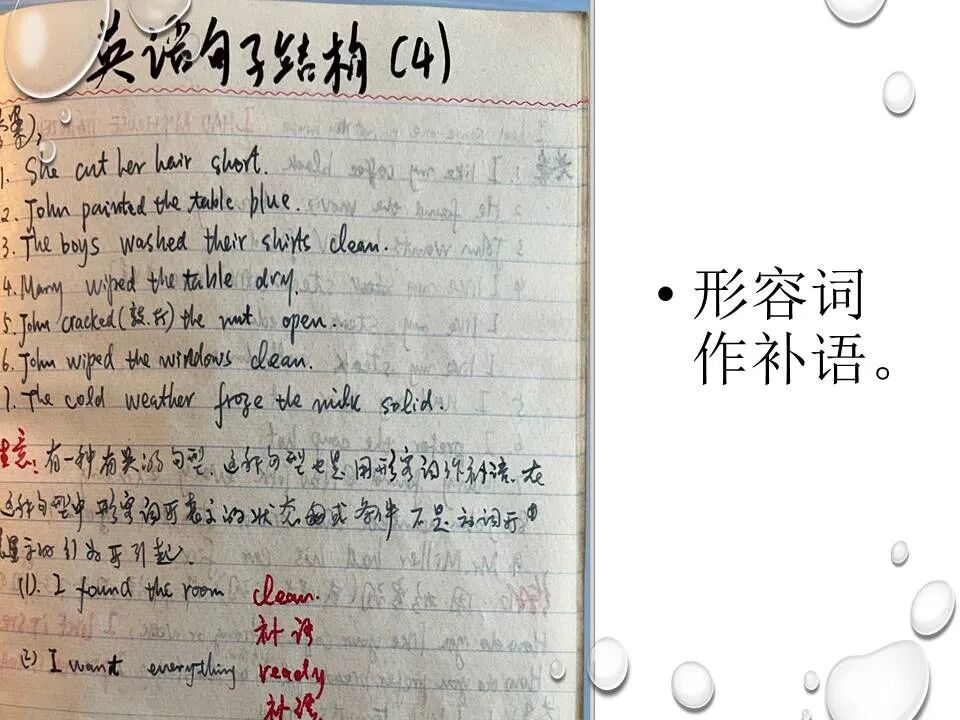 英语句子结构(4)
答案),
1. She cut her hair short.
2. John painted the table blue.
3. The boys washed their shirts clean.
4. Mary wiped the table dry.
5. John cracked(敲开) the nut open.
6. John wiped the windows clean.
7. The cold weather froze the milk solid.
注意: 有一种有关的句型, 这种句型也是用形容词作补语. 在
这种句型中 形容词所表示的状态或条件不是动词所
显示的行为所引起.
(1). I found the room clean.
补语
(2) I want everything ready
补语.
• 形容词
作补语。